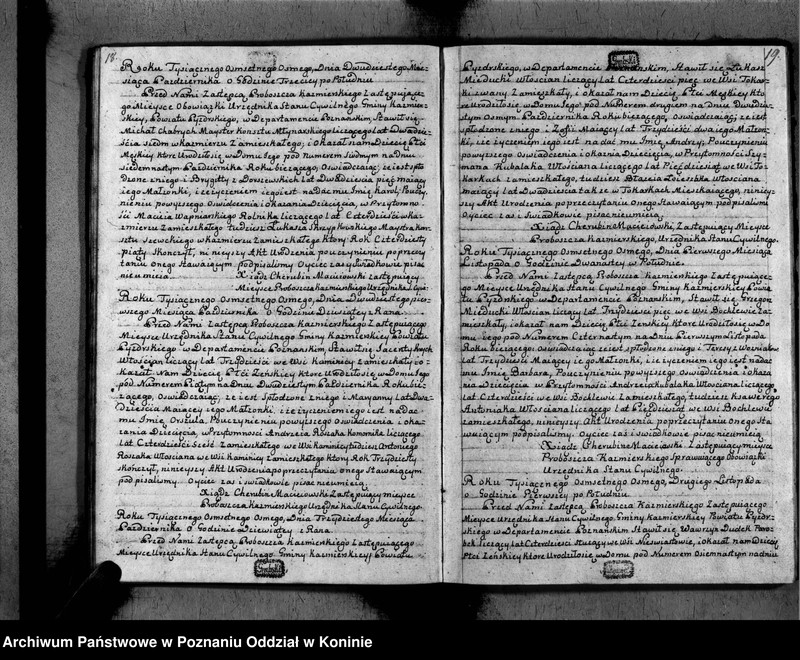 18
Roku Tysiącznego Osmsetnego Osmego, Dnia Dwudziestego
siąca Października o Godzinie Trzeciey po Południu
Przed Nami Zastępcą Proboszcza Kazmierskiego Zastępuiące
go Mieysce Obowiązki Urzędnika Stanu Cywilnego Gminy Kazmier
skiey, Powiatu Pyzdrskiego, w Departamencie Poznanskim, Stawił się
Michał Chabrych Mayster Konsztu Młynarskiego liczącego lat Dwadzie
ścia siedm w Kazmierzu Zamieszkałego; i okazał nam Dziecię Płci
Męskiey które Urodziło się w Domu Jego pod Numerem siódmym na Dniu
siedemnastym Października Roku bieżącego; Oswiadczaiąc, że iest spło
dzone z niego i Brygitty z lat Dwadzieścia pięć maiący
iego Małżonki, i że życzeniem iego iest nadać mu Imię Karol; Po uczy
nieniu powyższego Oświadczenia i okazania Dziecięcia, w Przytomno
ści Macieia Wapniarskiego Rolnika liczącego lat Czterdzieści w Kaz
mierzu Zamieszkałego tudzież Łukasza Maystra Kon
sztu Szewckiego w Kazmierzu Zamieszkałego który Rok Czterdziesty
piąty Skończył, ninieyszy Akt Urodzenia, po uczynieniu poprzeczy
taniu onego Stawaiącym podpisaliśmy Oyciec zaś i świadkowie pisać
nieumieią. Xiądz Cherubin Maciiowski Zastępuiący
Mieysce Proboszcza Kazmierskiego Urzędnika Cywil
Roku Tysiącznego Osmsetnego Osmego, Dnia Dwudziestego pier
wszego Miesiąca Października o Godzinie Dziewiątey z Rana.
Przed Nami Zastępcą Proboszcza Kazmierskiego Zastępuiącego
Mieysce Urzędnika Stanu Cywilnego Gminy Kazmierskiey Powiatu
Pyzdrskiego w Departamencie Poznanskim, Stawił się
Włościan liczący lat Trzydzieści we Wsi Kaminicy zamieszkały i o
kazał Nam Dziecię Płci Żeńskiey które Urodziło się w Domu Jego
pod Numerem Piątym na Dniu Dwudziestym Października Roku bie
żącego, Oswiadczaiąc, że iest Spłodzone z niego i Maryanny lat Dwa
dzieścia Maiącey iego Małżonki. i że życzeniem iego iest nadać
mu Imię Orszula, Po uczynieniu powyższego Oswiadczenia i oka
zania Dziecięcia, w Przytomności Andrzeia Roszaka Komornika liczącego
lat Czterdzieści Sześć Zamieszkałego we Wsi Kaminicy tudzież Antoniego
Roszaka Włosciana we Wsi Kaminicy Zamieszkałego który Rok Trzydziesty
skończył, ninieyszy Akt Urodzenia po przeczytaniu onego Stawaiącym
podpisaliśmy. Oyciec zaś i świadkowie pisać nieumieią.
Xiądz Cherubin Maciiowski Zastępuiący mieysce
Proboszcza Kazmierskiego Urzędnika Stanu Cywilnego.
Roku Tysiącznego Osmsetnego Osmego, Dnia Trzydziestego Miesiąca
Października o Godzinie Dziewiątey z Rana.
Przed Nami Zastępcą Proboszcza Kazmierskiego Zastępuiącego
Mieysce Urzędnika Stanu Cywilnego Gminy Kazmierskiey Powiatu
19
Pyzdrskiego, w Departamencie Poznanskim, Stawił się Łukasz
Mieducki Włoscian liczący lat Czterdzieści pięć we Wsi Tokar
ki zwany Zamieszkały, i okazał nam Dziecię Płci Męskiey Któ
re Urodziło się w Domu Jego pod Numerem drugiem na Dniu Dwudzie
stym Osmym Października Roku bieżącego, Oswiadczaiąc; że iest
spłodzone z niego i Zofii Maiący lat Trzydzieści dwa iego Małżon
ki, i że życzeniem iego iest nadać mu Imię Andrzey; Po uczynieniu
powyższego Oswiadczenia i okazania Dziecięcia, w Przytomności Szy
mana Kubalaka Włościana liczącego lat Pięćdziesiąt we Wsi To
karkach zamieszkałego, tudzież Błażeia Włościana
maiący lat Dwadzieścia także w Tokarkach Mieszkaiącego, niniey
szy Akt Urodzenia po przeczytaniu Onego Stawaiącym podpisaliśmy
Oyciec zaś i Świadkowie pisać nieumieią.
Xiądz Cherubin Maciiowski, Zastępuiący Mieysce
Proboszcza Kazmierskiego, Urzędnika Stanu Cywilnego.
Roku Tysiącznego Osmsetnego Osmego, Dnia Pierwszego Miesiąca
Listopada o Godzinie Dwunastey w Południe.
Przed Nami Zastępcą Proboszcza Kazmierskiego Zastępuiące
go Mieysce Urzędnika Stanu Cywilnego Gminy Kazmierskiey Powia
tu Pyzdrskiego w Departamencie Poznanskim, Stawił się Grzegorz
Mieducki Włoscian liczący lat Trzydzieści pięć we Wsi Bochlewie Za
mieszkały, i okazał nam Dziecię Płci Żeńskiey Które Urodziło się w Do
mu iego pod Numerem Czternastym na Dniu Pierwszym Listopada
Roku bieżącego. Oswiadczaiąc iest spłodzone z niego i Teressy z
lat Trzydzieści Maiącey iego Małżonki, i że życzeniem iego iest nadać
mu Imię Barbara, Po uczynieniu powyższego Oswiadczenia i okaza
nia Dziecięcia w Przytomności Andrzeia Kubalaka Włościana liczącego
lat Czterdzieści we Wsi Bochlewie Zamieszkałego, tudzież Ksawerego
Antoniaka Włościana liczącego lat Pięćdziesiąt we Wsi Bochlewie
zamieszkałego, ninieyszy Akt Urodzenia po przeczytaniu onego Sta
waiącym podpisaliśmy. Oyciec zaś i świadkowie pisać nieumieią.
Xiądz Cherubin Maciiowski Zastępuiący mieysce
Proboszcza Kazmierskiego Sprawuiącego Obowiązki
Urzędnika Stanu Cywilnego.
Roku Tysiącznego Osmsetnego Osmego, Drugiego Listopada
o Godzinie Pierwszey po Południu.
Przed Nami Zastępcą Proboszcza Kazmierskiego Zastępuiącego
Mieysce Urzędnika Stanu Cywilnego Gminy Kazmierskiey Powiatu Pyzdr
skiego w Departamencie Poznanskim Stawił się Wawrzyn Dudek Paro
bek liczący lat Czterdzieści we Wsi Nieswiastowie, i okazał nam Dziecię
Płci Żeńskiey Które Urodziło się w Domu pod Numerem Osiemnastym na dniu
Archiwum Państwowe w Poznaniu Oddział w Koninie